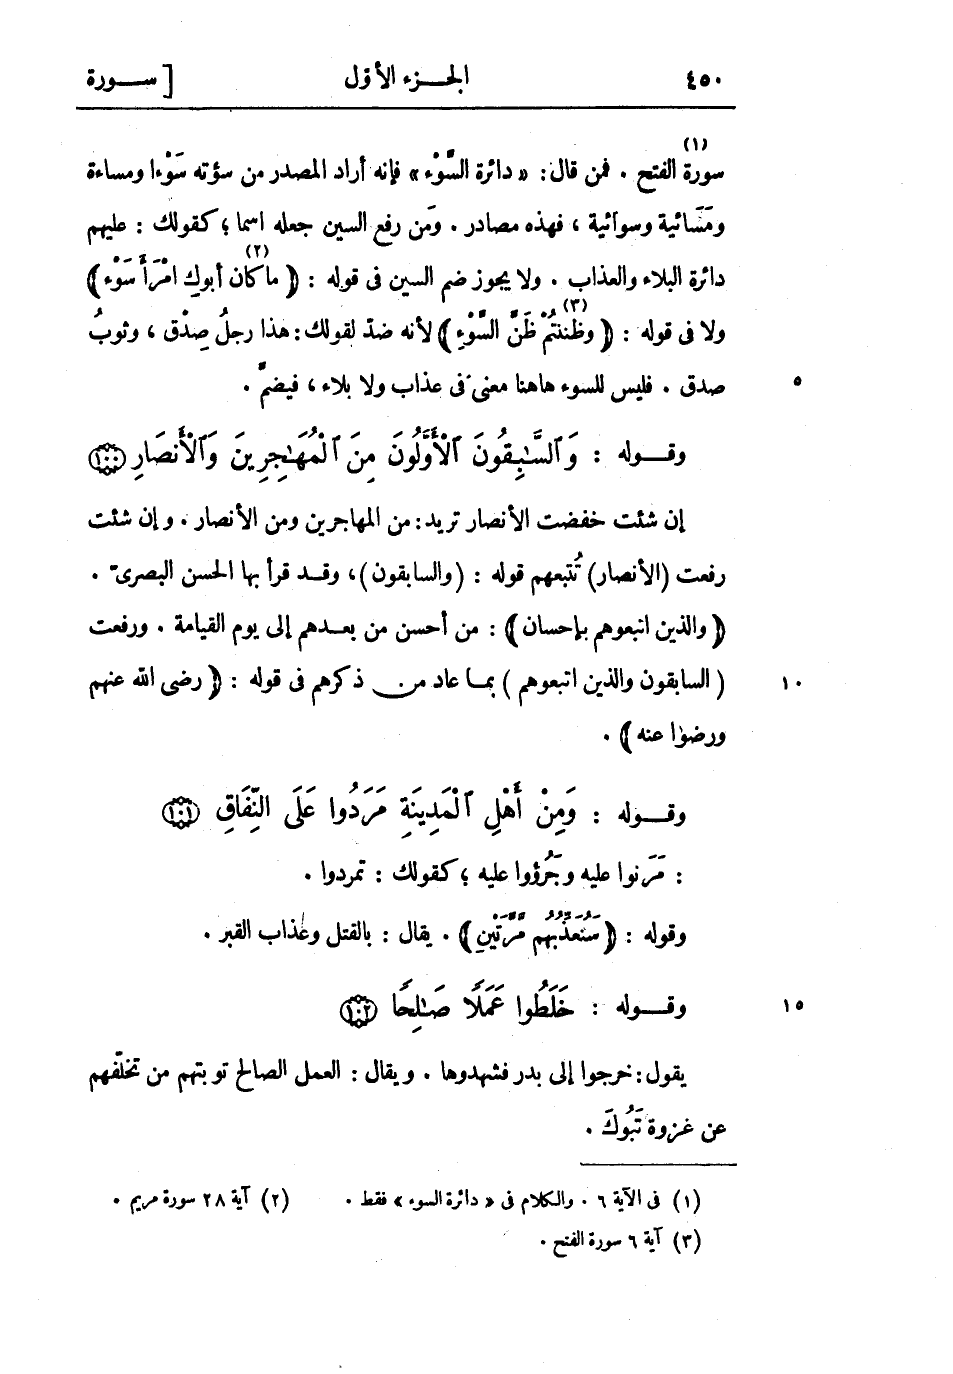 ٤٥٠ الجـــزء الأوّل [ ســـورة
سورة الفتح (١) . فمن قال : « دائرة السَّوْء » فإنه أراد المصدر من سؤته سَوْءا ومساءة
ومَسَائية وسوائية ، فهذه مصادر . ومَن رفع السين جعله اسما ؛ كقولك : عليهم
دائرة البلاء والعذاب . ولا يجوز ضم السين فى قوله : ﴿ ما كان أبوكِ امْرَأَ سَوْء ﴾ (٢)
ولا فى قوله : ﴿ وظننتُمْ ظَنَّ السَّوْءِ ﴾ (٣) لأنه ضدّ لقولك : هذا رجلُ صِدْق ، وثوبُ
صدق . فليس للسوء هاهنا معنى فى عذاب ولا بلاء ، فيضمّ . ٥
وقـــوله : وَٱلسَّٰبِقُونَ ٱلْأَوَّلُونَ مِنَ ٱلْمُهَٰجِرِينَ وَٱلْأَنصَارِ ١٠٠
إن شئت خفضت الأنصار تريد : من المهاجرين ومن الأنصار . و إن شئت
رفعت (الأنصار) تُتبعهم قوله : (والسابقون) ، وقــد قرأ بها الحسن البصرىّ .
﴿ والذين اتبعوهم بإحسان ﴾ : من أحسن من بعــدهم إلى يوم القيامة . ورفعت
( السابقون والذين اتبعوهم ) بمــا عاد من ذكرهم فى قوله : ﴿ رضى الله عنهم ١٠
ورضوا عنه ﴾ .
وقـــوله : وَمِنْ أَهْلِ ٱلْمَدِينَةِ مَرَدُوا عَلَى النِّفَاقِ ١٠١
: مَرَنوا عليه وجَرُؤوا عليه ؛ كقولك : تمردوا .
وقوله : ﴿ سَنُعَذِّبُهُم مَّرَّتَيْنِ ﴾ . يقال : بالقتل وعذاب القبر .
وقـــوله : خَلَطُوا عَمَلًا صَٰلِحًا ١٠٢ ١٥
يقول : خرجوا إلى بدر فشهدوها . و يقال : العمل الصالح توبتهم من تخلّفهم
عن غزوة تَبُوكَ .
(١) فى الآية ٦ . والكلام فى « دائرة السوء » فقط . (٢) آية ٢٨ سورة مريم .
(٣) آية ٦ سورة الفتح .